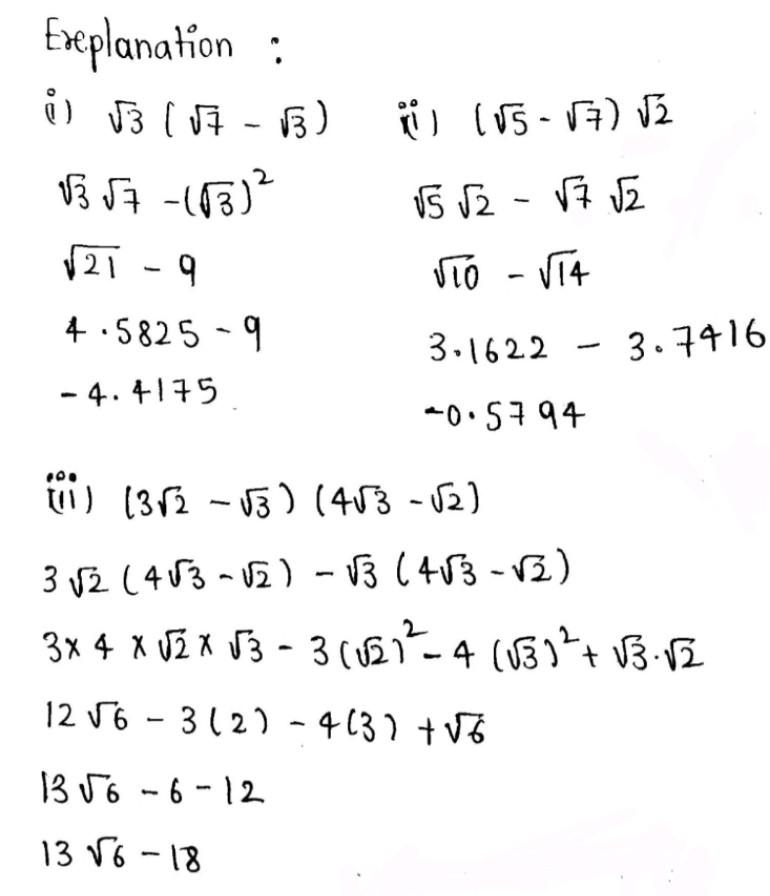 Explanation :
i) √3 (√7 - √3)
√3 √7 -(√3)²
√21 - 9
4.5825 - 9
-4.4175
ii) (√5 - √7) √2
√5 √2 - √7 √2
√10 - √14
3.1622 - 3.7416
-0.5794
iii) (3√2 - √3) (4√3 - √2)
3√2 (4√3 - √2) - √3 (4√3 - √2)
3x 4 x √2 x √3 - 3(√2)² - 4 (√3)² + √3.√2
12√6 - 3(2) - 4(3) + √6
13√6 - 6 - 12
13√6 - 18